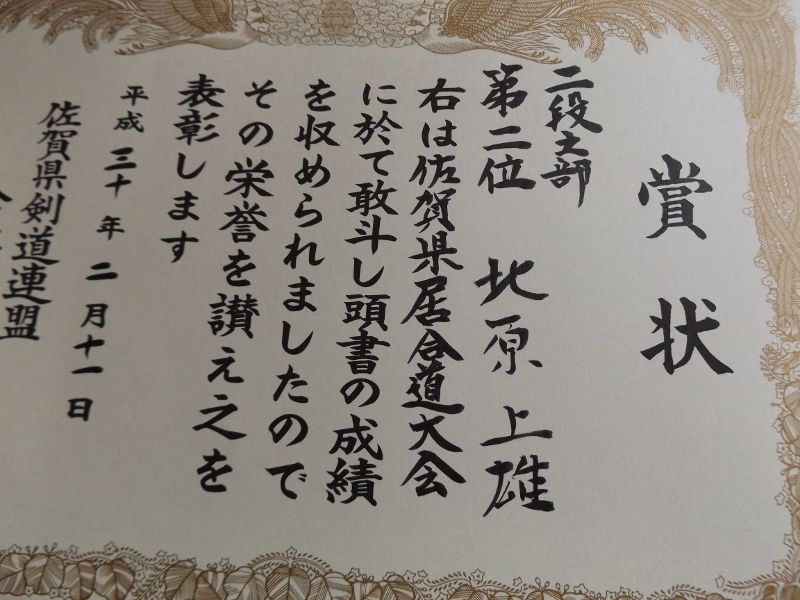 賞状
二段之部
第二位 北原上雄
右は佐賀県居合道大会
に於て敢斗し頭書の成績
を収められましたので
その栄誉を讃え之を
表彰します
平成三十年二月十一日
佐賀県剣道連盟